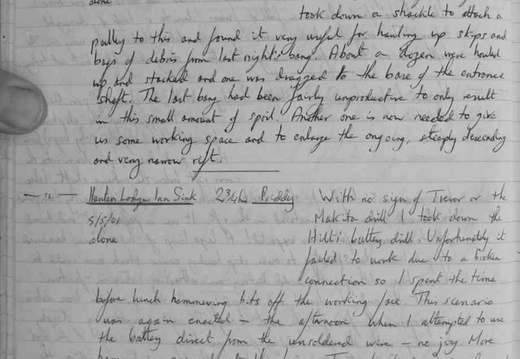 alone
took down a shackle to attach a
pulley to this and found it very useful for hauling up skips and
bags of debris from last night's bang. About a dozen were hauled
up and stacked and one was dragged to the base of the entrance
shaft. The last bang had been fairly unproductive to only result
in this small amount of spoil. Another one is now needed to give
us some working space and to enlarge the ongoing, steeply descending
and very narrow rift.
Hunters Lodge Inn Sink Priddy With no sign of Trevor or the
5/5/01 Makita drill I took down the
alone Hilti battery drill. Unfortunately it
failed to work due to a broken
connection so I spent the time
before lunch hammering bits off the working face. This scenario
was again enacted in the afternoon when I attempted to use
the battery direct from the unsoldered wire - no joy. More